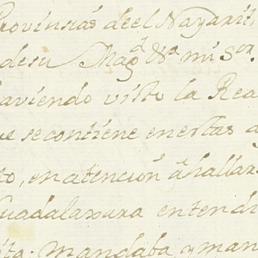 Provinsias de el Nayarit,
de su Mag.d N.ra mi S.or
aviendo visto la Rea
se contiene en ertas a
to, en atencion â hallars
Guadalaxara entendi
ita: mandaba, y man